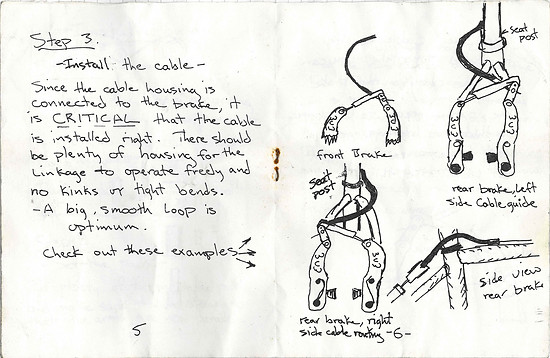 Step 3.
-Install the cable-
Since the cable housing is
connected to the brake, it
is CRITICAL that the cable
is installed right. There should
be plenty of housing for the
Linkage to operate freely and
no kinks or tight bends.
-A big, smooth loop is
optimum.
Check out these examples
5
front Brake
seat
post
rear brake, left
side Cable guide
seat
post
rear brake, right
side cable routing
-6-
side view
rear brake